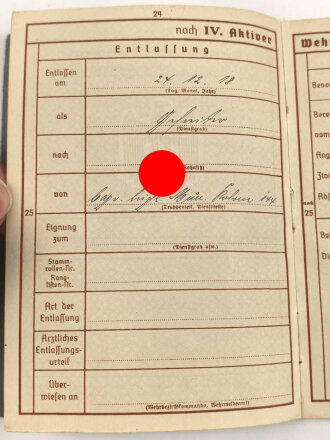 24
noch IV. Aktiver
Entlassung
Entlassen am
24. 12. 18
(Tag, Monat, Jahr)
als
Gefreiter
(Dienstgrad)
nach
von
bayr. leicht. Mun. Kolonne 144
(Truppenteil, Dienststelle)
25
Eignung zum
(Dienstgrad usw.)
Stamm-
rollen-Nr.
Rang-
listen-Nr.
Art der
Entlassung
Ärztliches
Entlassungs-
urteil
Über-
wiesen an
(Wehrbezirkskommando, Wehrmeldeamt)
Wehr